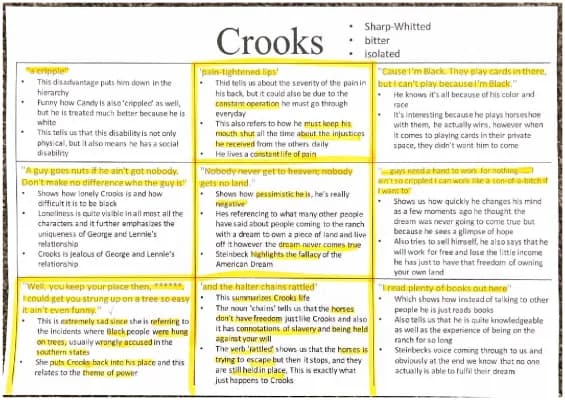 Crooks
• Sharp-Whitted
• bitter
• isolated
"a cripple"
• This disadvantage puts him down in the
hierarchy
• Funny how Candy is also 'crippled' as well,
but he is treated much better because he is
white
• This tells us that this disability is not only
physical, but it also means he has a social
disability
'pain-tightened lips'
• Thid tells us about the severity of the pain in
his back, but it could also be due to the
constant operation he must go through
everyday
• This also refers to how he must keep his
mouth shut all the time about the injustices
he received from the others daily
• He lives a constant life of pain
"Cause I'm Black. They play cards in there,
but I can't play because I'm Black."
• He knows it's all because of his color and
race
• It's interesting because he plays horseshoe
with them, he actually wins, however when
it comes to playing cards in their private
space, they didn't want him to come
"A guy goes nuts if he ain't got nobody.
Don't make no difference who the guy is"
• Shows how lonely Crooks is and how
difficult it is to be black
• Loneliness is quite visible in all most all the
characters and it further emphasizes the
uniqueness of George and Lennie's
relationship
• Crooks is jealous of George and Lennie's
relationship
"Nobody never get to heaven; nobody
gets no land."
• Shows how pessimistic he is, he's really
negative
• Hes referencing to what many other people
have said about people coming to the ranch
with a dream to own a piece of land and live
off it however the dream never comes true
• Steinbeck highlights the fallacy of the
American Dream
"... guys need a hand to work for nothing ... I
ain't so crippled I can work like a son-of-a-bitch if
I want to'
• Shows us how quickly he changes his mind
as a few moments ago he thought the
dream was never going to come true but
because he sees a glimpse of hope
• Also tries to sell himself, he also says that he
will work for free and lose the little income
he has just to have that freedom of owning
your own land
"Well, you keep your place then, ******,
I could get you strung up on a tree so easy
it ain't even funny."
• This is extremely sad since she is referring to
the incidents where Black people were hung
on trees, usually wrongly accused in the
southern states
• She puts Crooks back into his place and this
relates to the theme of power
'and the halter chains rattled'
• This summarizes Crooks life
• The noun 'chains' tells us that the horses
don't have freedom just like Crooks and also
it has connotations of slavery and being held
against your will
• The verb 'rattled' shows us that the horses is
trying to escape but then it stops, and they
are still held in place, This is exactly what
just happens to Crooks
"I read plenty of books out here"
• Which shows how instead of talking to other
people he is just reads books
• Also tells us that he is quite knowledgeable
as well as the experience of being on the
ranch for so long
• Steinbecks voice coming through to us and
obviously at the end we know that no one
actually is able to fulfil their dream